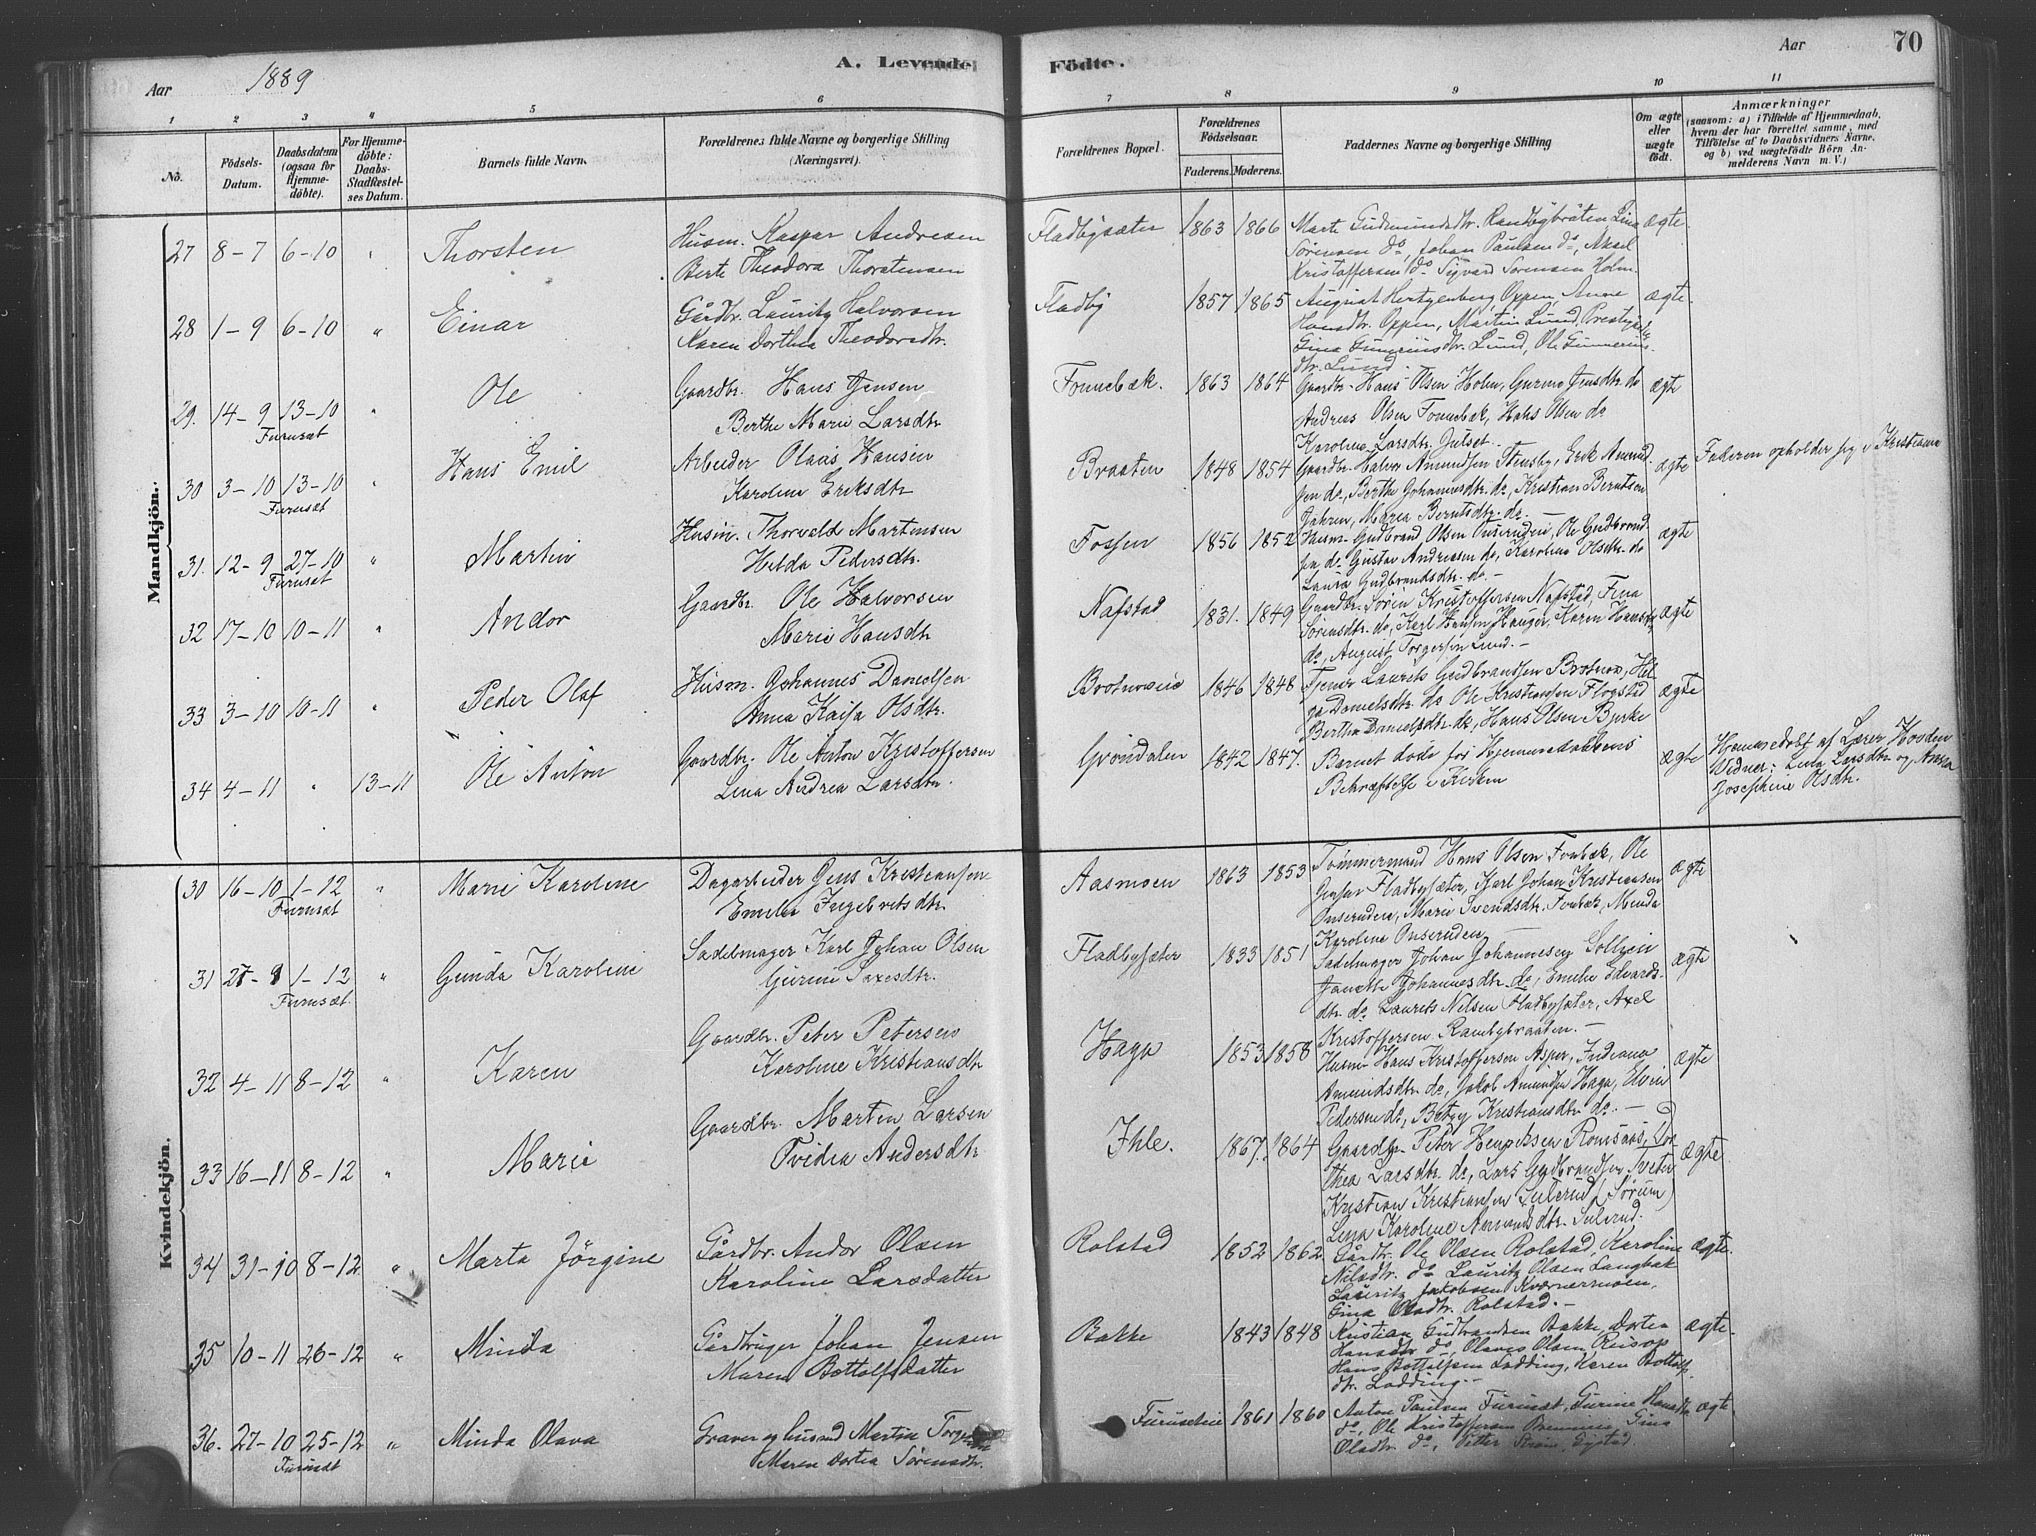 Aar 1889
A. Levende Födte.
Aar 70
1 2 3 4 5 6 7 8 9 10 11
No.
Födsels-Datum.
Daabsdatum (ogsaa for Hjemme-döbte).
For Hjemme-döbte: Daabs-Stadfæstel-ses Datum.
Barnets fulde Navn.
Forældrenes fulde Navne og borgerlige Stilling (Næringsvei).
Forældrenes Bopæl.
Forældrenes Födselsaar.
Faderens. Moderens.
Faddernes Navne og borgerlige Stilling
Om ægte eller uægte födt.
Anmærkninger
(saasom: a) i Tilfælde af Hjemmedaab, hvem der har forrettet samme, med Tilföielse af to Daabsvidners Navne, og b) ved uægtefödte Börn An-melderens Navn m. V.)
Mandkjön.
27 8-7 6-10 " Thorsten Husm. Kaspar Andresen Fladbysæter 1863 1866 Marte Gudmundsdtr. Randbybråten, Lina ægte
Berte Theodora Thorstensen Sørensen do, Johan Paulsen do, Aksel
Kristoffersen do Sigvard Sørensen Holm.
28 1-9 6-10 " Einar Gårdbr. Lauritz Halvorsen Fladby 1857 1865 August Hertzenberg, Oppen, Anne ægte
Karen Dorthea Theodorsdtr. Hansdtr. Oppen, Martin Lund, Prestegrd.
Gina Gunneriusdtr. Lund, Ole Gunnerius-
dtr. Lund.
29. 14-9 13-10 " Ole Gaardbr. Hans Jensen Fonnebæk. 1863 1864 Gaardbr. Hans Olsen Holm, Gurine Jensdtr. do ægte
Furuset Berthe Marie Larsdtr Andreas Olsen Fonnebæk, Hans Olsen do
Karoline Larsdtr. Julset.
30 3-10 13-10 " Hans Emil Arbeider Olaus Hansen Braaten 1848 1854 Gaardbr. Halvor Amundsen Stensby, Erik Amund ægte Faderen opholder sig i Kristiania
Furuset Karoline Eriksdtr sen do, Berthe Johannesdtr. do, Kristian Berntsen
Jahren, Maria Berntsdtr. do.
31. 12-9 27-10 " Martin Husm. Thorvald Martensen Fossen 1856 1852 Husm. Gudbrand Olsen Onseruden, Ole Gudbrand ægte
Furuset Helda Pedersdtr. sen do Gustav Andreasen do, Karoline Olsdtr. do
Laura Gudbrandsdtr. do. -
32 17-10 10-11 " Andor Gaardbr. Ole Halvorsen Nafstad 1831. 1849 Gaardbr. Sören Kristoffersen Nafstad, Fina ægte
Marie Hansdtr Sörensdtr. do, Karl Hansen Hauger, Karen Hansdtr
do, August Torgersen Lund. -
33 3-10 10-11 " Peder Olaf Husm. Johannes Danielsen Brotnoseie 1846 1848 Tjener Laurits Gudbrandsen Brotnos, Hel ægte
Anna Kaisa Olsdtr. ga Danielsdtr. do Ole Kristiansen Flogstad
Berthe Danielsdtr. do, Hans Olsen Bjerke
34 4-11 " 13-11 Ole Anton Gaardbr. Ole Anton Kristoffersen Gröndalen 1842 1847. Barnet döde för Hjemmedaabens ægte Hjemmedöbt af Lærer Hosden
Lina Andrea Larsdtr. Bekræftelse i Kirken Vidner: Lina Larsdtr og Anna
Josephine Olsdtr.
Kvindekjön.
30 16-10 1-12 " Marie Karoline Dagarbeider Jens Kristiansen Aasmoen 1863 1853 Tömmermand Hans Olsen Fonbæk, Ole ægte
Furuset Emilie Ingebretsdtr. Jensen Fladbysæter, Karl Johan Kristiansen
Onseruden, Marie Svendsdtr. Fonbæk, Minda
Karoline Onseruden -
31 27-9 1-12 " Gunda Karoline Sadelmager Karl Johan Olsen Fladbysæter 1833 1851 Sadelmager Johan Johannesen Solheim ægte
Furuset. Gurine Saxesdtr. Janette Johannesdtr. do, Emilie Edvards-
dtr. do Laurits Nilsen Fladbysæter, Axel
Kristoffersen Rambybraaten. -
32 4-11 8-12 " Karen Gaardbr. Peter Petersen Haga 1853 1858 Husm. Hans Kristoffersen Asper, Indiana ægte
Karoline Kristiansdtr Amundsdtr. do, Jakob Amundsen Haga, Edvin
Pedersen do, Betzy Kristiansdtr. do. -
33 16-11 8-12 " Marie Gaardbr. Martin Larsen Ihle. 1867. 1864 Gaardbr. Peter Henriksen Romsaas, Do ægte
Ovidia Andersdtr thea Larsdtr. do, Lars Gudbrandsen Tveter
Kristian Kristiansen Julerud (Sörum)
Lina Karoline Amundsdtr. Julerud.
34 31-10 8-12 " Marta Jörgine Gårdbr. Andor Olsen Rolstad 1852 1862 Gårdbr. Ole Olsen Rolstad, Karoline ægte.
Karoline Larsdatter Nilsdtr. do Lauritz Olsen Langbak
Lauritz Jakobsen Kværnermoen,
Gina Olsdtr. Rolstad. -
35 10-11 26-12 " Minda Gårdbruger Johan Jensen Bakke 1843 1848 Kristian Gudbrandsen Bakke, Dortea ægte.
Maren Bottolfsdatter Hansdtr do, Olaves Olsen Reisop
Hans Bottolfsen Lodding, Karen Bottolfs
dtr. Lodding. -
36. 27-10 25-12 " Minda Olava Graver og husmd Martin Torgersen Furuseteie 1861 1860 Anton Paulsen Furuset, Gurine Hansdtr ægte
Furuset Maren Dortea Sörensdtr. do, Ole Kristoffersen Gina
Olsdtr. do, Petter Ström,